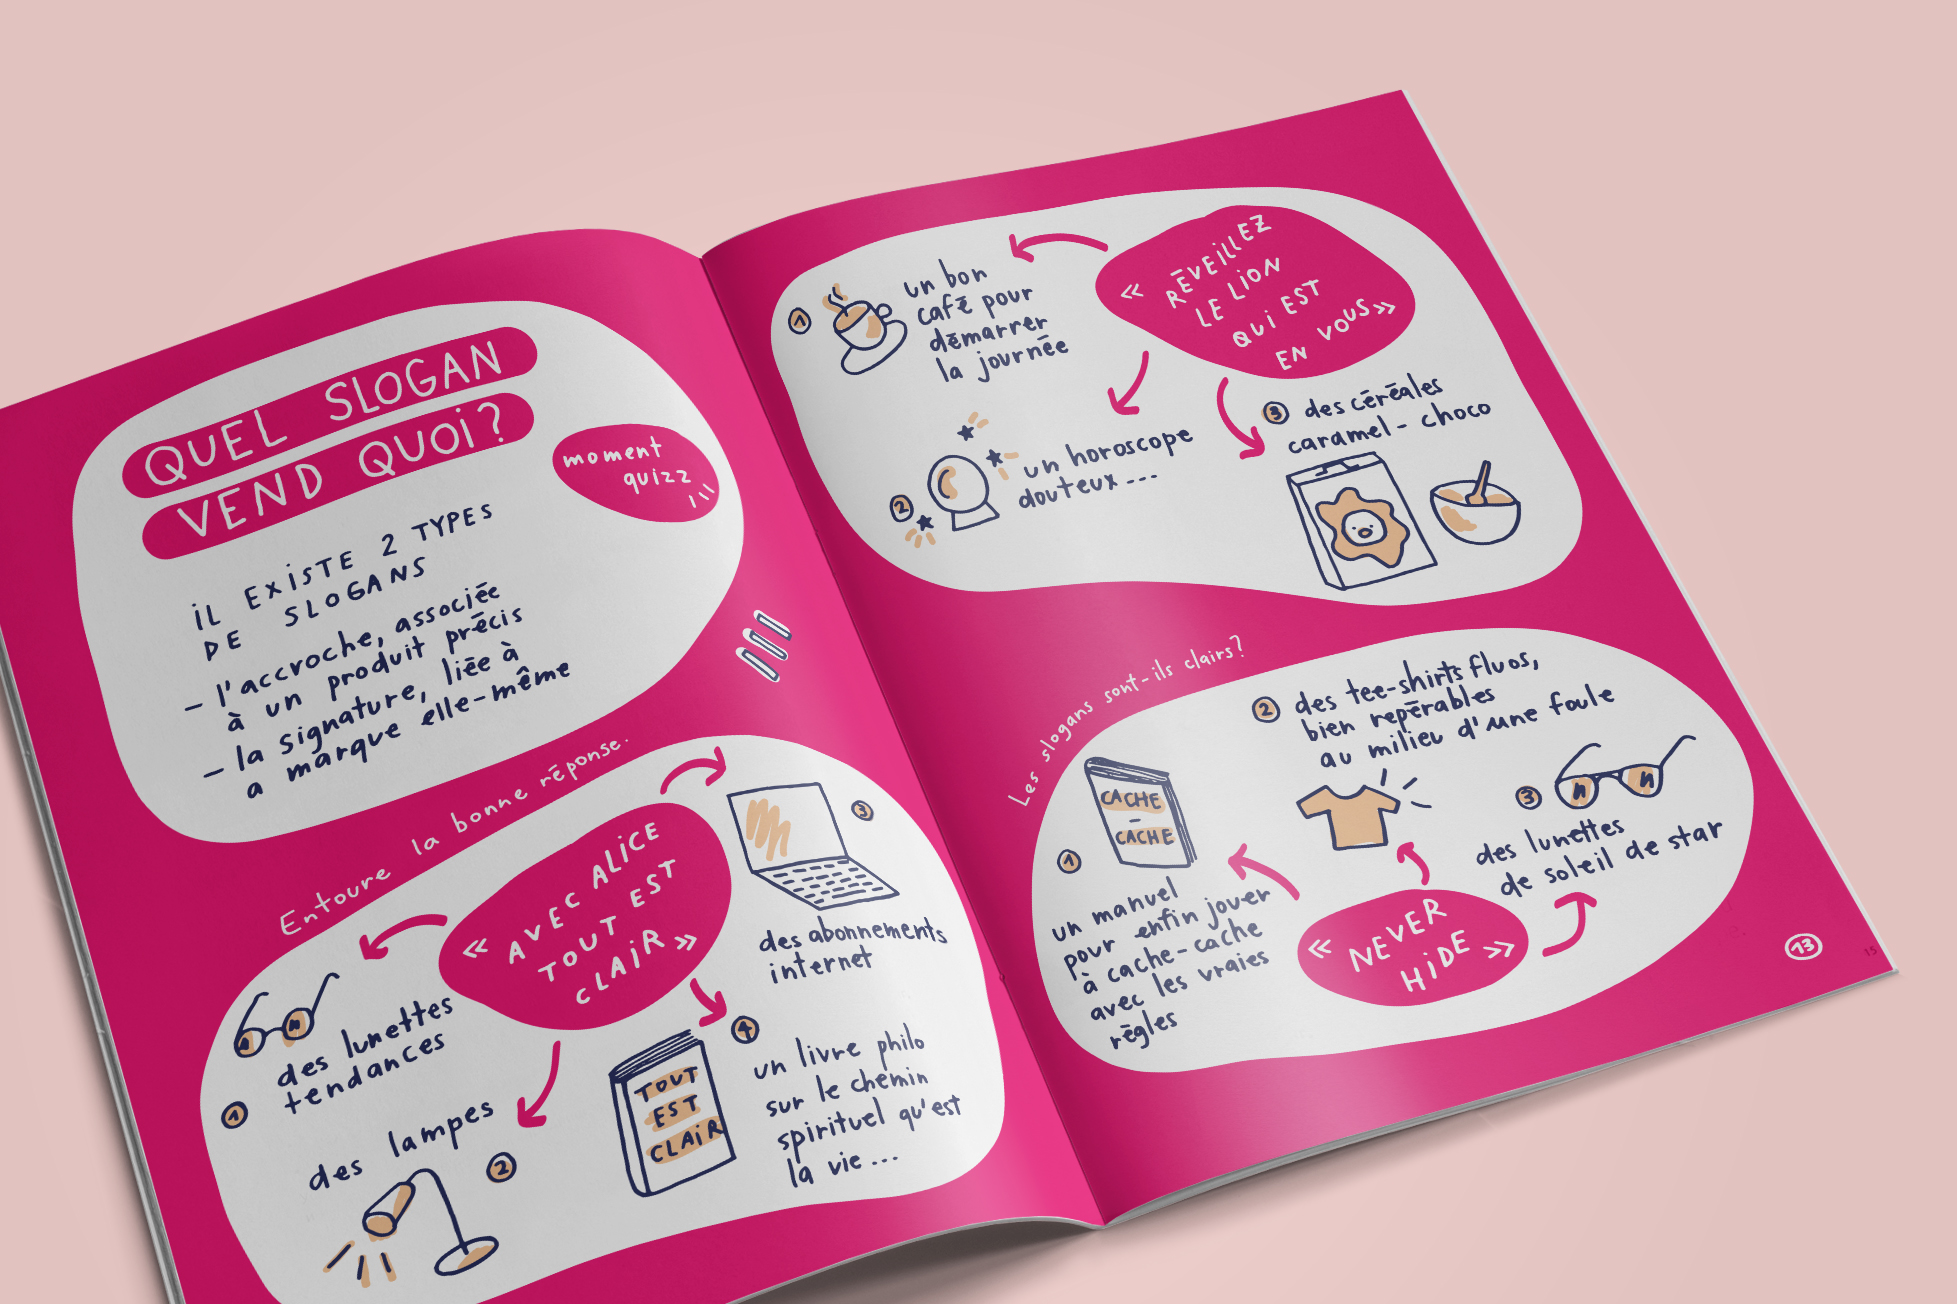 QUEL SLOGAN
VEND QUOI?
moment
quizz
IL EXISTE 2 TYPES
DE SLOGANS
- l'accroche, associée
à un produit précis
- la signature, liée à
a marque elle-même
Entoure la bonne réponse.
« AVEC ALICE
TOUT EST
CLAIR »
1
des lunettes
tendances
des lampes
2
3
des abonnements
internet
4
TOUT
EST
CLAIR
un livre philo
sur le chemin
spirituel qu'est
la vie...
« RÉVEILLEZ
LE LION
QUI EST
EN VOUS »
1
un bon
café pour
démarrer
la journée
2
un horoscope
douteux ...
3 des céréales
caramel - choco
Les slogans sont-ils clairs?
« NEVER
HIDE »
1
CACHE
-
CACHE
un manuel
pour enfin jouer
à cache-cache
avec les vraies
règles
2 des tee-shirts fluos,
bien repérables
au milieu d'une foule
3
des lunettes
de soleil de star
13
15